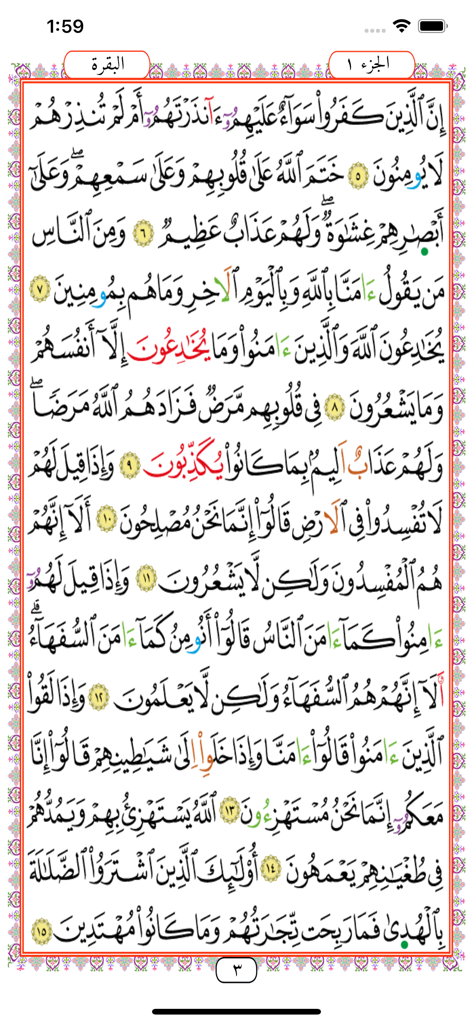 1:59
الجزء ١
البقرة
إِنَّ ٱلَّذِينَ كَفَرُواْ سَوَآءٌ عَلَيْهِمُۥٓ ءَآنذَرْتَهُمُۥٓ أَمْ لَمْ تُنذِرْهُمْ
لَا يُومِنُونَ ٥ خَتَمَ ٱللَّهُ عَلَىٰ قُلُوبِهِمْ وَعَلَىٰ سَمْعِهِمْۖ وَعَلَىٰٓ
أَبْصَٰرِهِمْ غِشَٰوَةٌۖ وَلَهُمْ عَذَابٌ عَظِيمٌ ٦ وَمِنَ ٱلنَّاسِ
مَن يَقُولُ ءَامَنَّا بِٱللَّهِ وَبِٱلْيَوْمِ ٱلَاخِرِ وَمَا هُم بِمُومِنِينَ ٧
يُخَٰدِعُونَ ٱللَّهَ وَٱلَّذِينَ ءَامَنُواْ وَمَا يُخَٰدِعُونَ إِلَّآ أَنفُسَهُمْ
وَمَا يَشْعُرُونَ ٨ فِي قُلُوبِهِم مَّرَضٌ فَزَادَهُمُ ٱللَّهُ مَرَضٗاۖ
وَلَهُمْ عَذَابٌ اَلِيمُۢ بِمَا كَانُواْ يُكَذِّبُونَ ٩ وَإِذَا قِيلَ لَهُمْ
لَا تُفْسِدُواْ فِي ٱلَارْضِ قَالُوٓاْ إِنَّمَا نَحْنُ مُصْلِحُونَ ١٠ أَلَآ إِنَّهُمْ
هُمُ ٱلْمُفْسِدُونَ وَلَٰكِن لَّا يَشْعُرُونَ ١١ وَإِذَا قِيلَ لَهُمُۥٓ
ءَامِنُواْ كَمَآ ءَامَنَ ٱلنَّاسُ قَالُوٓاْ أَنُومِنُ كَمَآ ءَامَنَ ٱلسُّفَهَآءُۗ
ا۬لَآ إِنَّهُمْ هُمُ ٱلسُّفَهَآءُ وَلَٰكِن لَّا يَعْلَمُونَ ١٢ وَإِذَا لَقُواْ
ٱلَّذِينَ ءَامَنُواْ قَالُوٓاْ ءَامَنَّا وَإِذَا خَلَوِاْ اِلَىٰ شَيَٰطِينِهِمْ قَالُوٓاْ إِنَّا
مَعَكُمُۥٓ إِنَّمَا نَحْنُ مُسْتَهْزِءُونَ ١٣ ٱللَّهُ يَسْتَهْزِئُ بِهِمْ وَيَمُدُّهُمْ
فِي طُغْيَٰنِهِمْ يَعْمَهُونَ ١٤ أُوْلَٰٓئِكَ ٱلَّذِينَ ٱشْتَرَوُاْ ٱلضَّلَٰلَةَ
بِٱلْهُدَىٰ فَمَا رَبِحَت تِّجَٰرَتُهُمْ وَمَا كَانُواْ مُهْتَدِينَ ١٥
٣